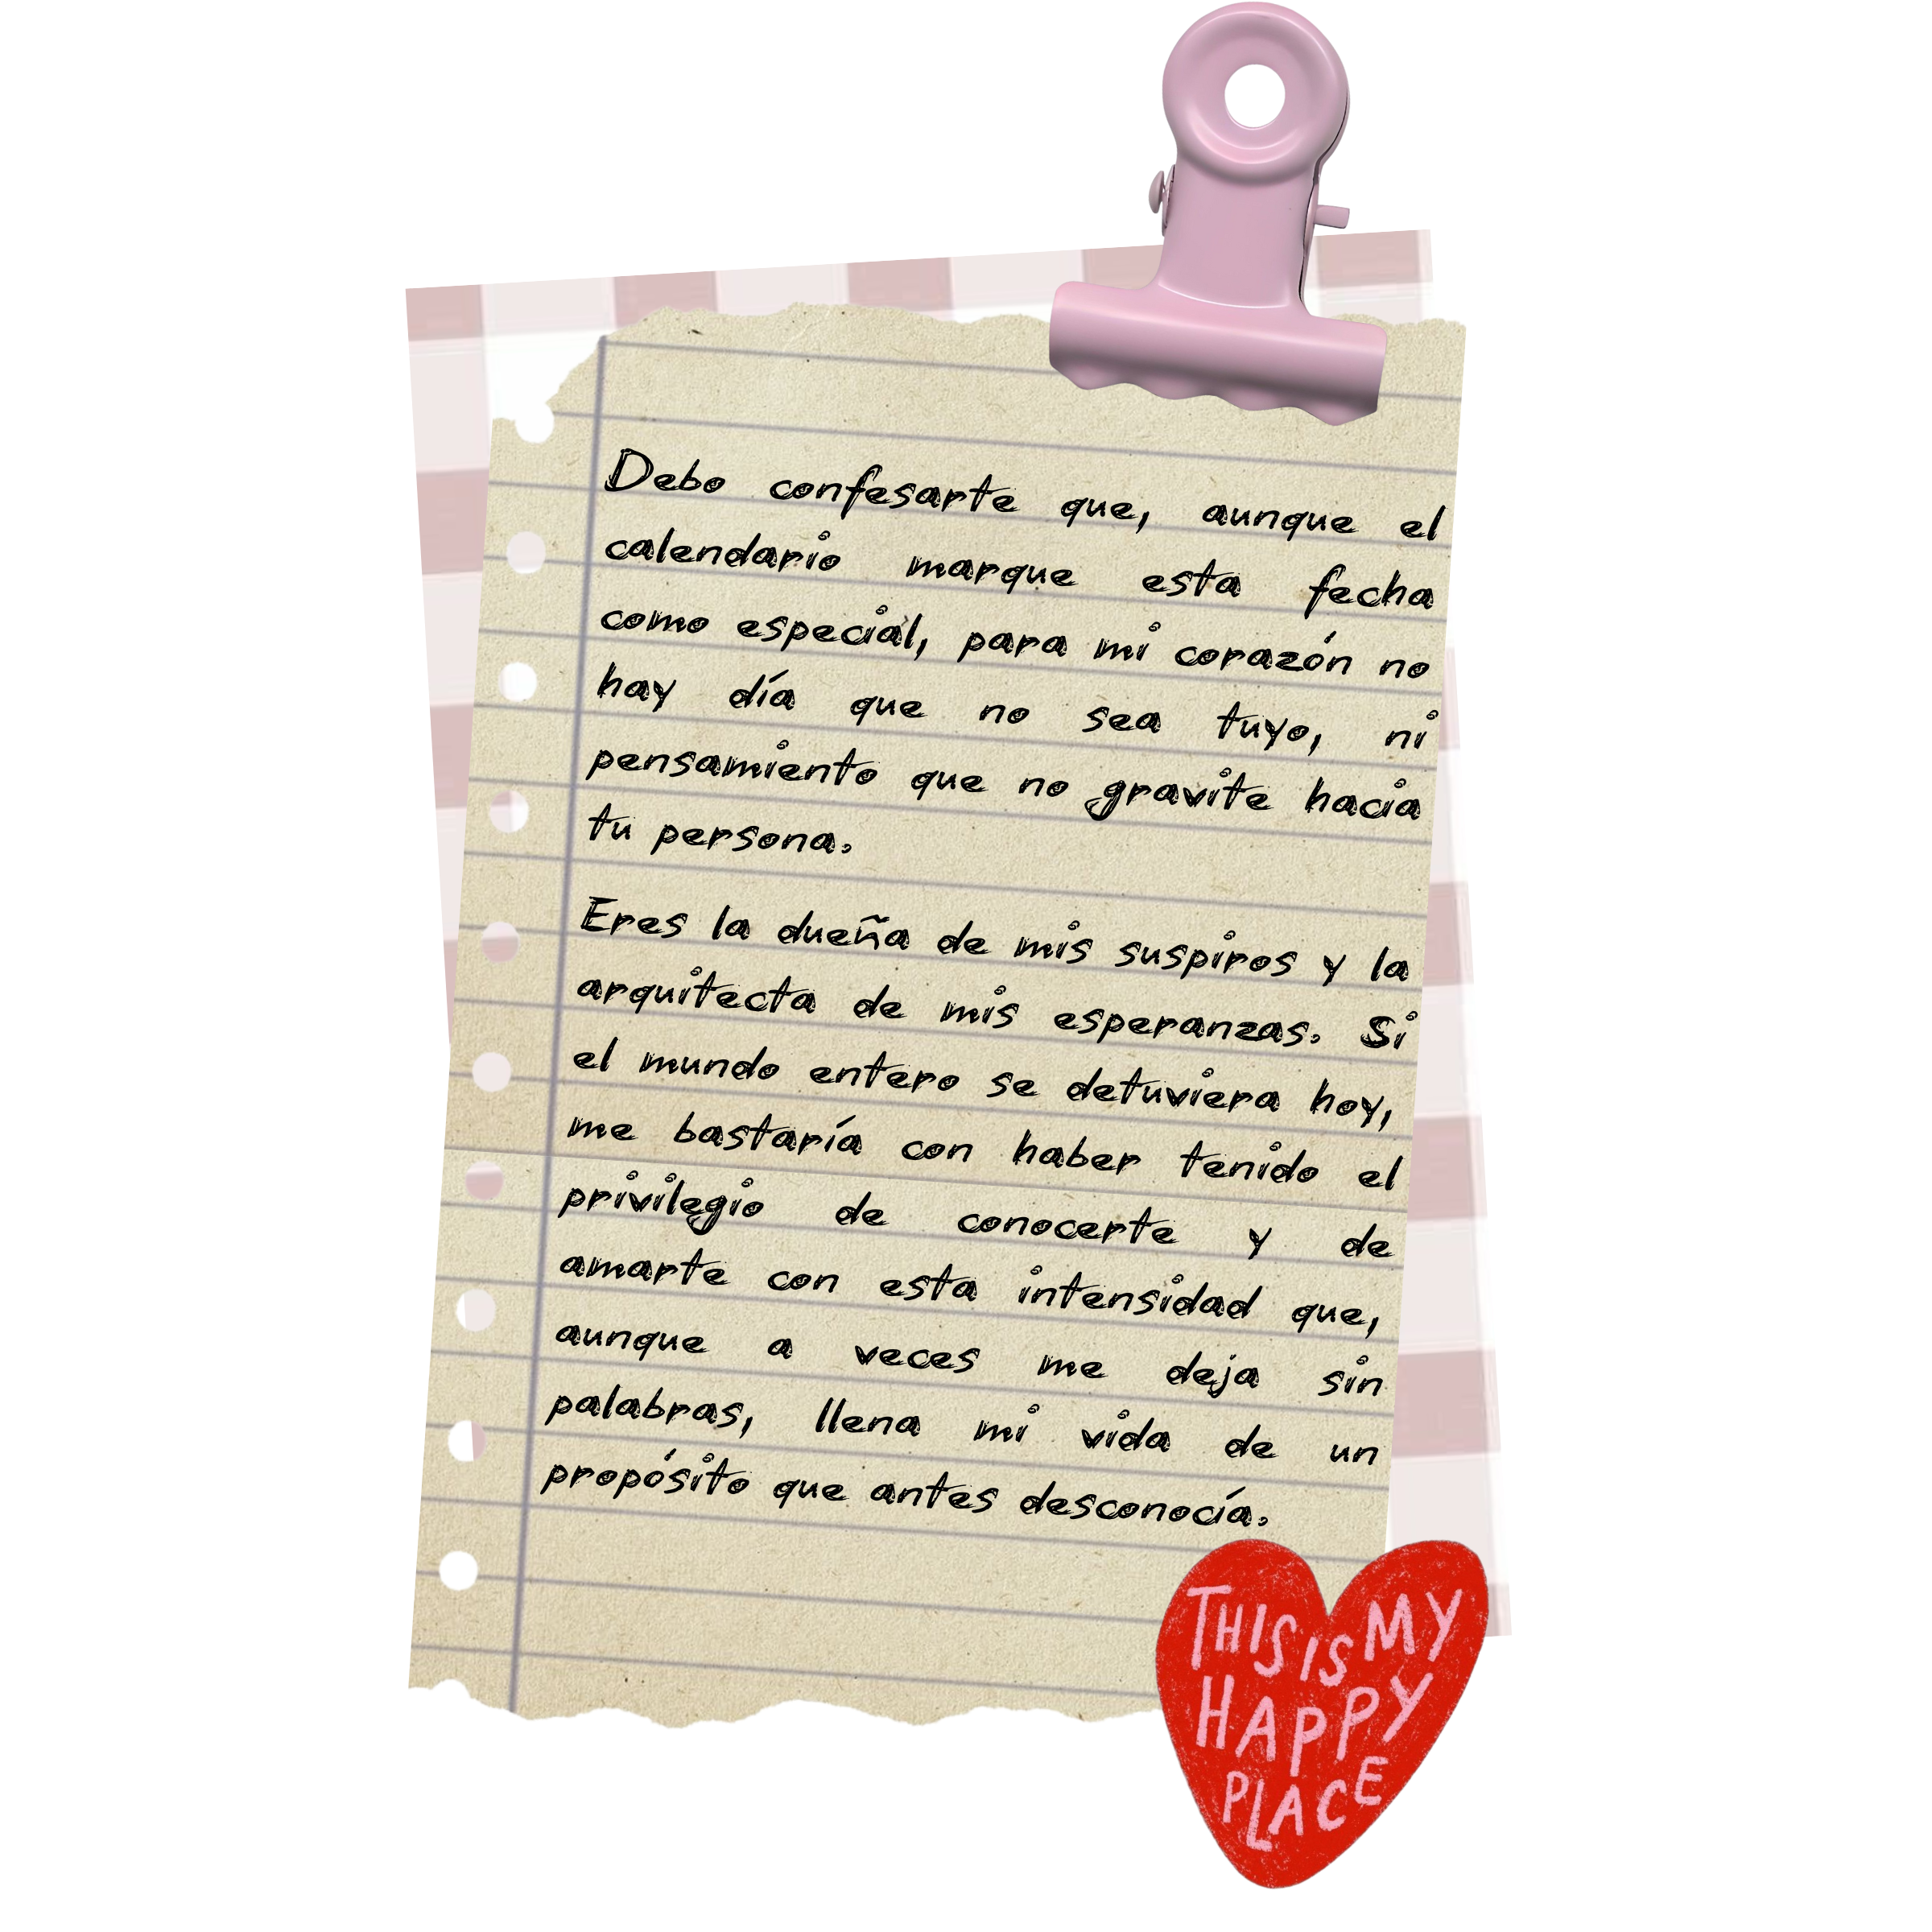 Debo confesarte que, aunque el
calendario marque esta fecha
como especial, para mi corazón no
hay día que no sea tuyo, ni
pensamiento que no gravite hacia
tu persona.
Eres la dueña de mis suspiros y la
arquitecta de mis esperanzas. Si
el mundo entero se detuviera hoy,
me bastaría con haber tenido el
privilegio de conocerte y de
amarte con esta intensidad que,
aunque a veces me deja sin
palabras, llena mi vida de un
propósito que antes desconocía.
THIS IS MY
HAPPY
PLACE